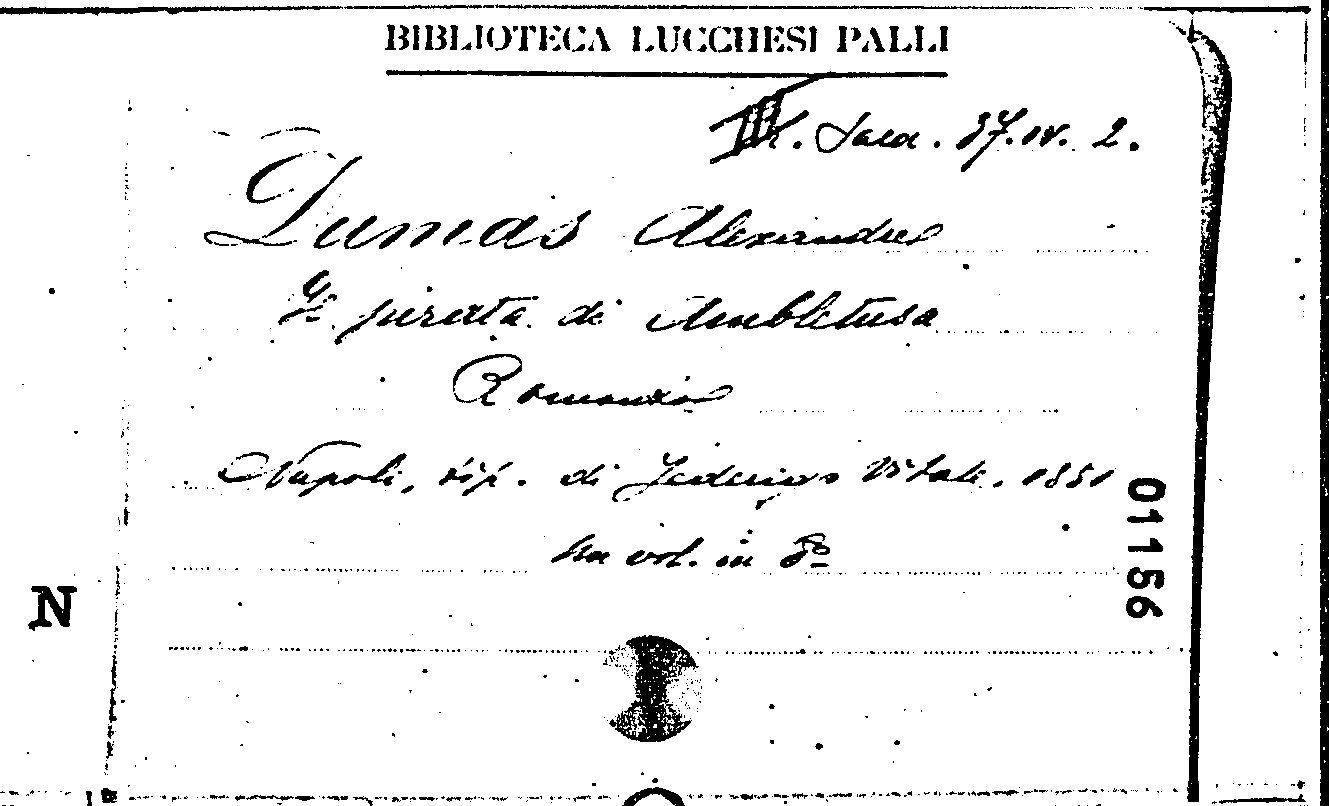 BIBLIOTECA LUCCHESI PALLI
Sala. 37. IV. 2.
Dumas Alexandre
Il pirata di Ambletusa
Romanzo
Napoli, tip. di Federigo Vitale, 1851
un vol. in 8º
01156
N